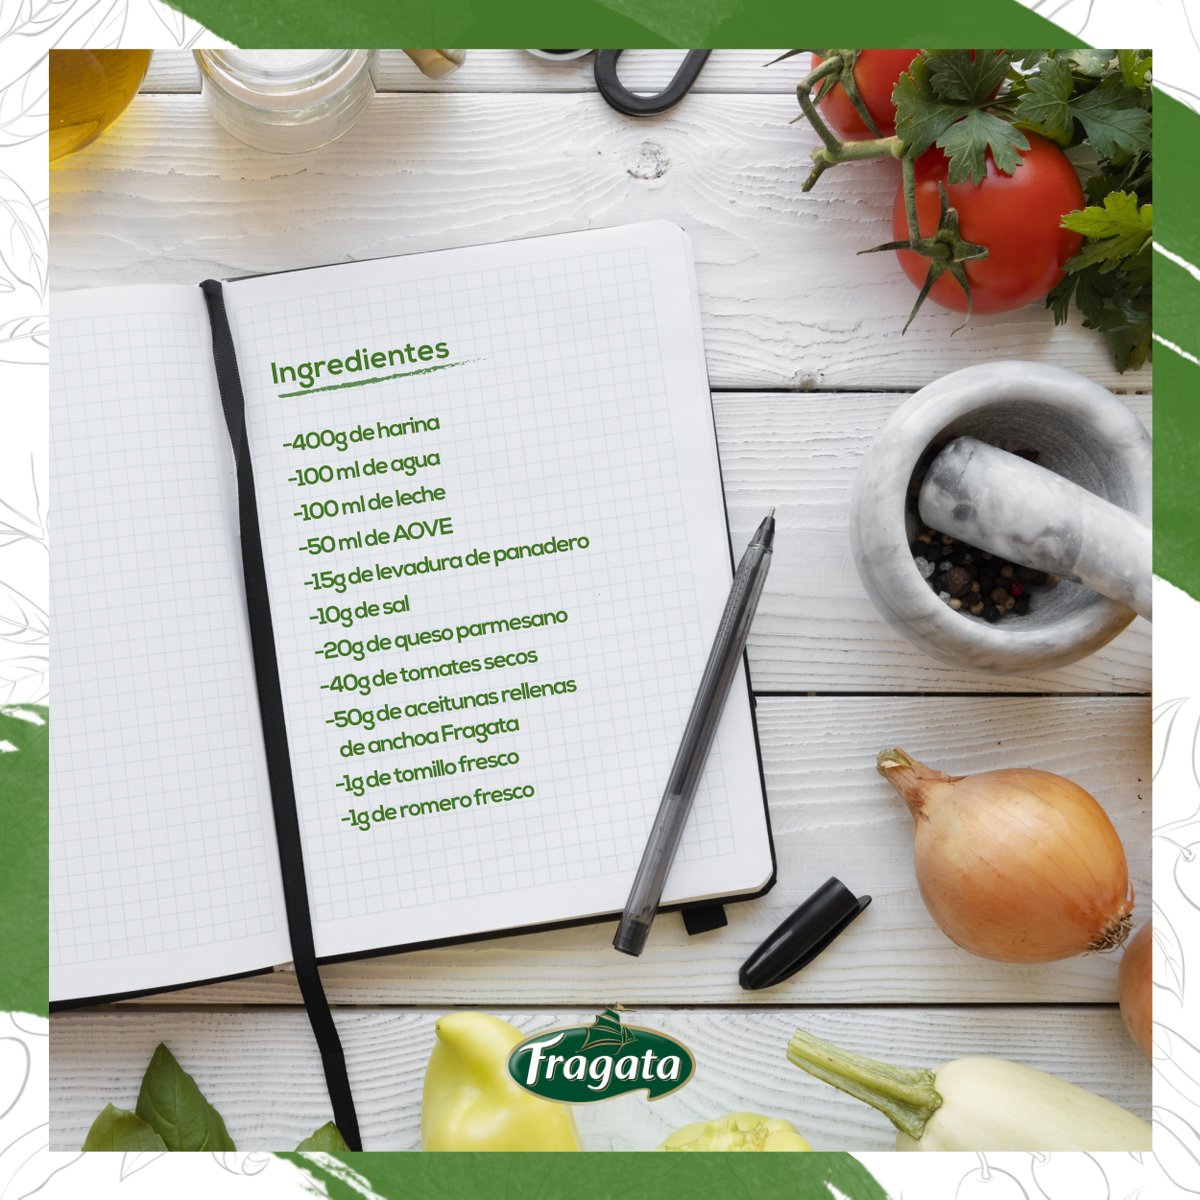 Ingredientes
-400g de harina
-100 ml de agua
-100 ml de leche
-50 ml de AOVE
-15g de levadura de panadero
-10g de sal
-20g de queso parmesano
-40g de tomates secos
-50g de aceitunas rellenas
de anchoa Fragata
-1g de tomillo fresco
-1g de romero fresco
Fragata